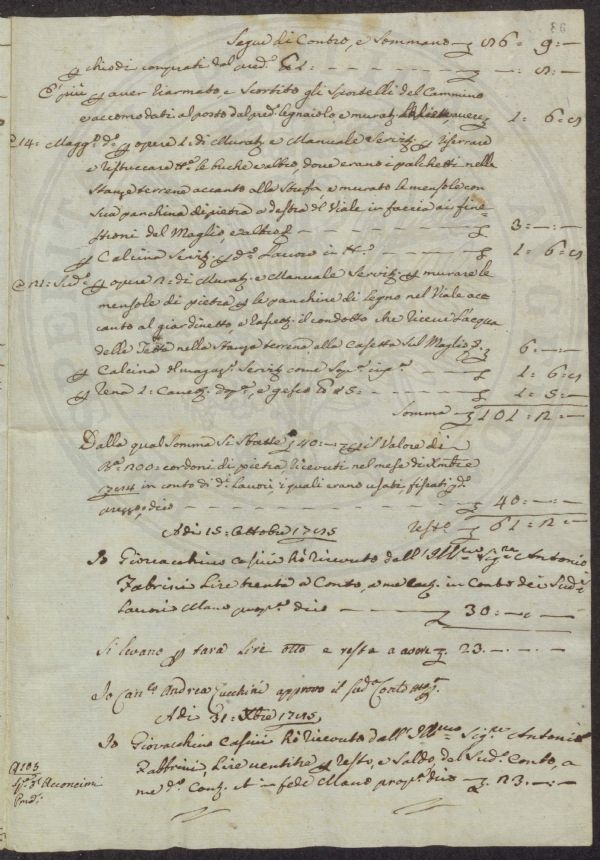 93
Segue di Contro, e Sommano £ 86 = 9 = —
p chiodi comprati dal pred.º £ — = 8 = —
E più p aver riarmato, e Scortito gli Sportelli del Cammino
e accomodati al posto dal pred. legnaiolo e murat. £ 1 = 6 = 8
a 14 = Magg.º d.º p opere 1 = di Murat.e e Manuale Servit. p riserrare
e ristuccare tt.e le buche e altro, dove erano i palchetti nella
Stanza terrena accanto alla Stufa e murato le mensole con
Sua panchina di pietra a destra del Viale in faccia ai fine-
strioni del Maglio, e altro £ 3 = — = —
p Calcina Servit. p d.º Lavoro in tt.º £ 1 = 6 = 8
a 21 = Sud.º p opere 2 = di Murat.e e Manuale Servit. p murare le
mensole di pietra p le panchine di legno nel Viale ac-
canto al giardinetto, e rassett. il condotto che riceve l'acqua
delle Tetta nella Stanza terrena alla Casetta Sul Maglio £ 6 — = —
p Calcina Servit. come Sop.ª £ 1 = 6 = 8
p Rena 1 = e gesso £ 1 = 5 = —
Somma £ 101 = 12 = —
Dalla qual Somma Si Sbatte £ 40 = — = — p il Valore di
200 = cordoni di pietra, ricevuti nel mese di Xmbre
1794 in conto di d.i Lavori, i quali erano usati, fissati p d.º
prezzo, dico £ 40 = — = —
Resto £ 61 = 12 = —
Adi 15 = Ottobre 1795
Io Giovacchino Casini hò ricevuto dall' Ill.mo Sig.re Antonio
Fabbrini Lire trenta a Conto, a me cont. in Conto dei Sud.i
Lavori Mano prop.ª dico £ 30 = — = —
Si levano p tara lire otto e resta a avere £ 23. — . —
Io Can.co Andrea Zucchini approvo il Sud.º Conto mp.ª
Adi 31 = Xbre 1795
Io Giovacchino Casini hò ricevuto dall' Ill.mo Sig.re Antonio
Fabbrini, Lire ventitre p resto, e Saldo del Sud.º Conto, a
me d.º Cont. et in fede Mano prop.ª dico £ 23 = — = —
Acconcimi